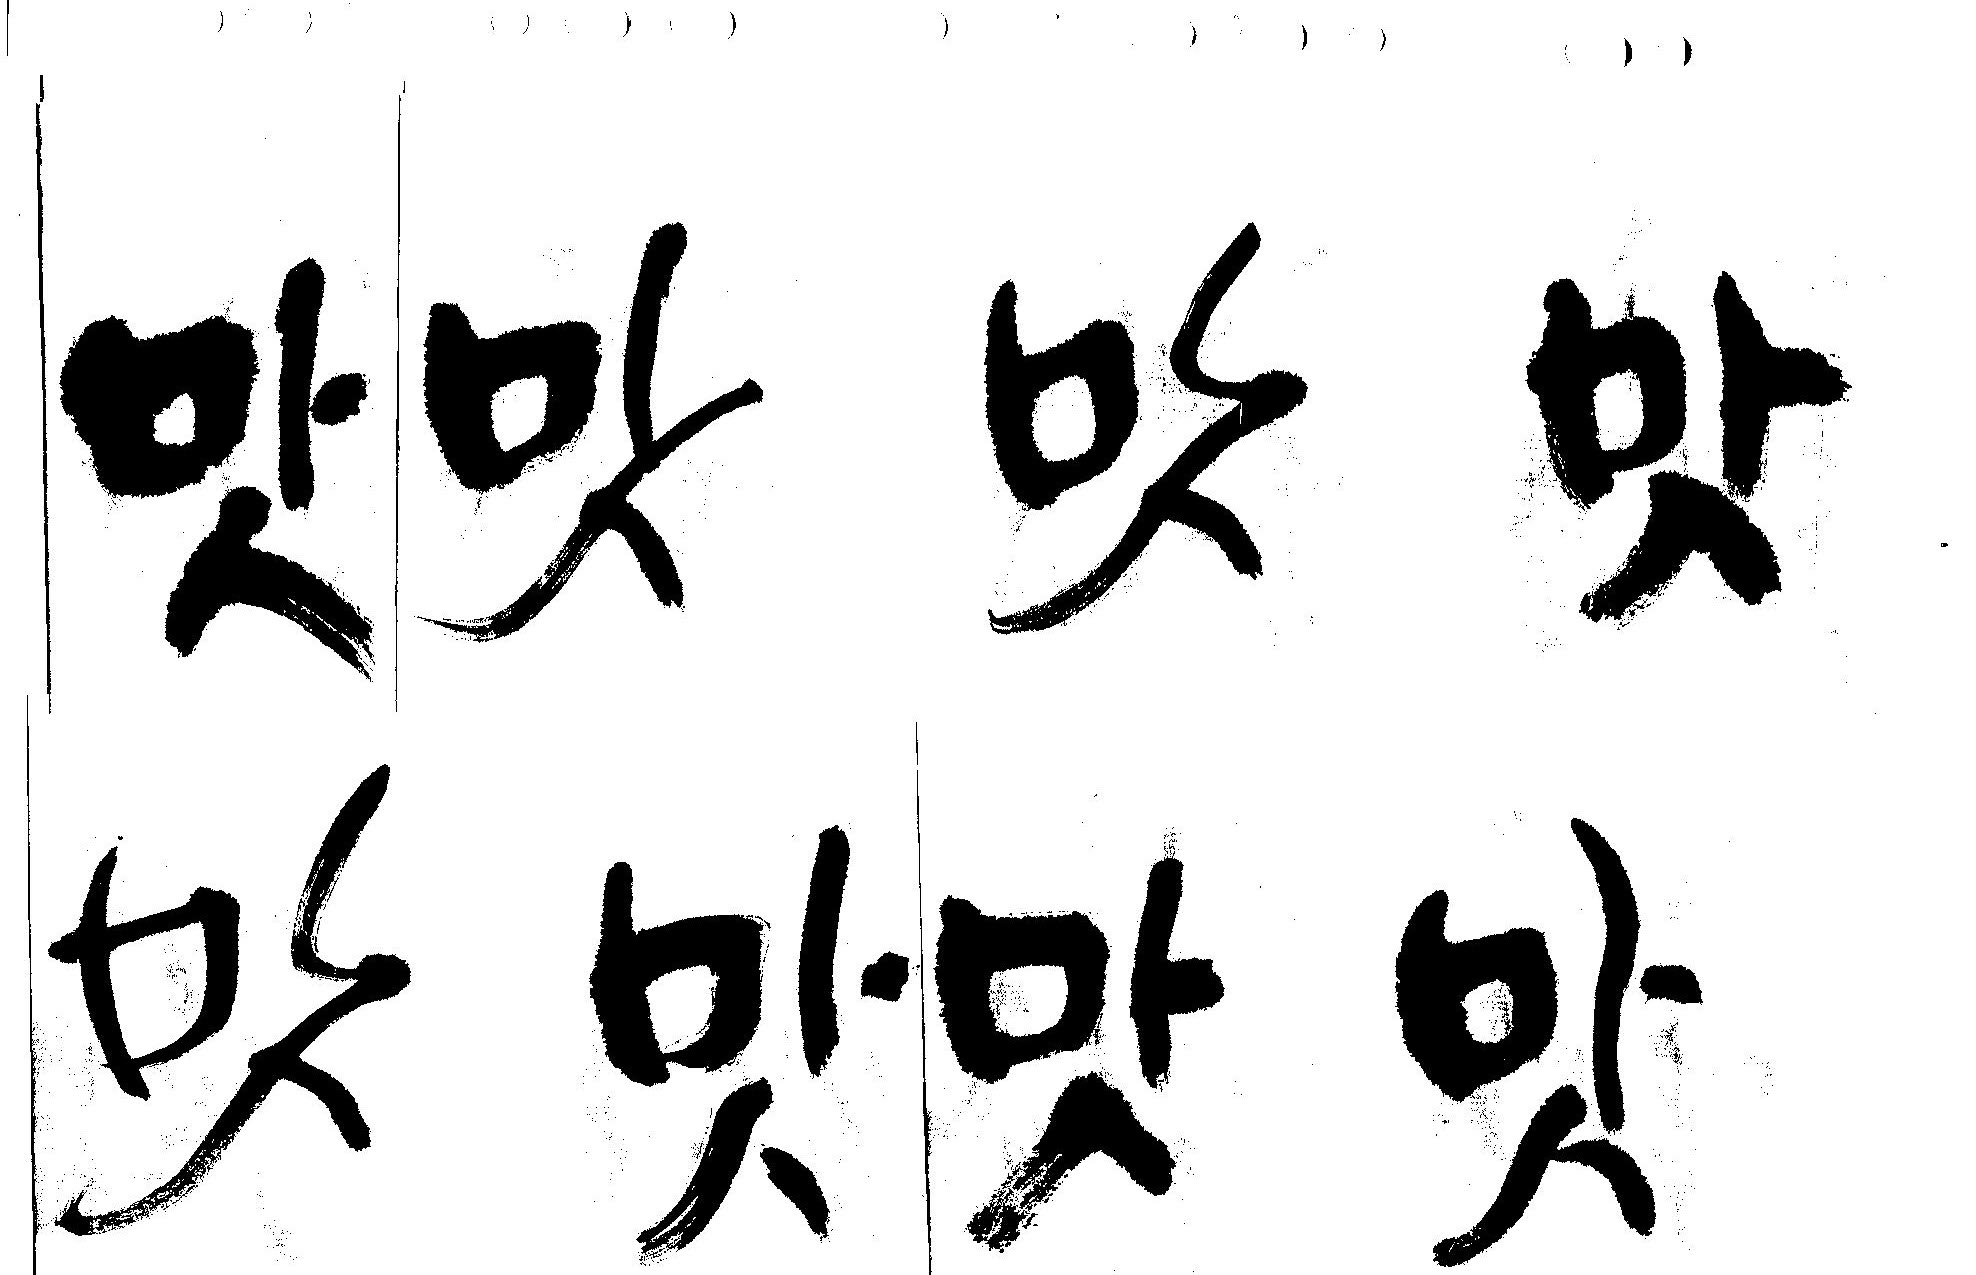 맛 맛 맛 맛
맛 맛 맛 맛